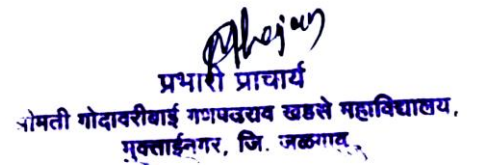 प्रभारी प्राचार्य
श्रीमती गोदावरीबाई गणपतराव खडसे महाविद्यालय,
मुक्ताईनगर, जि. जळगाव